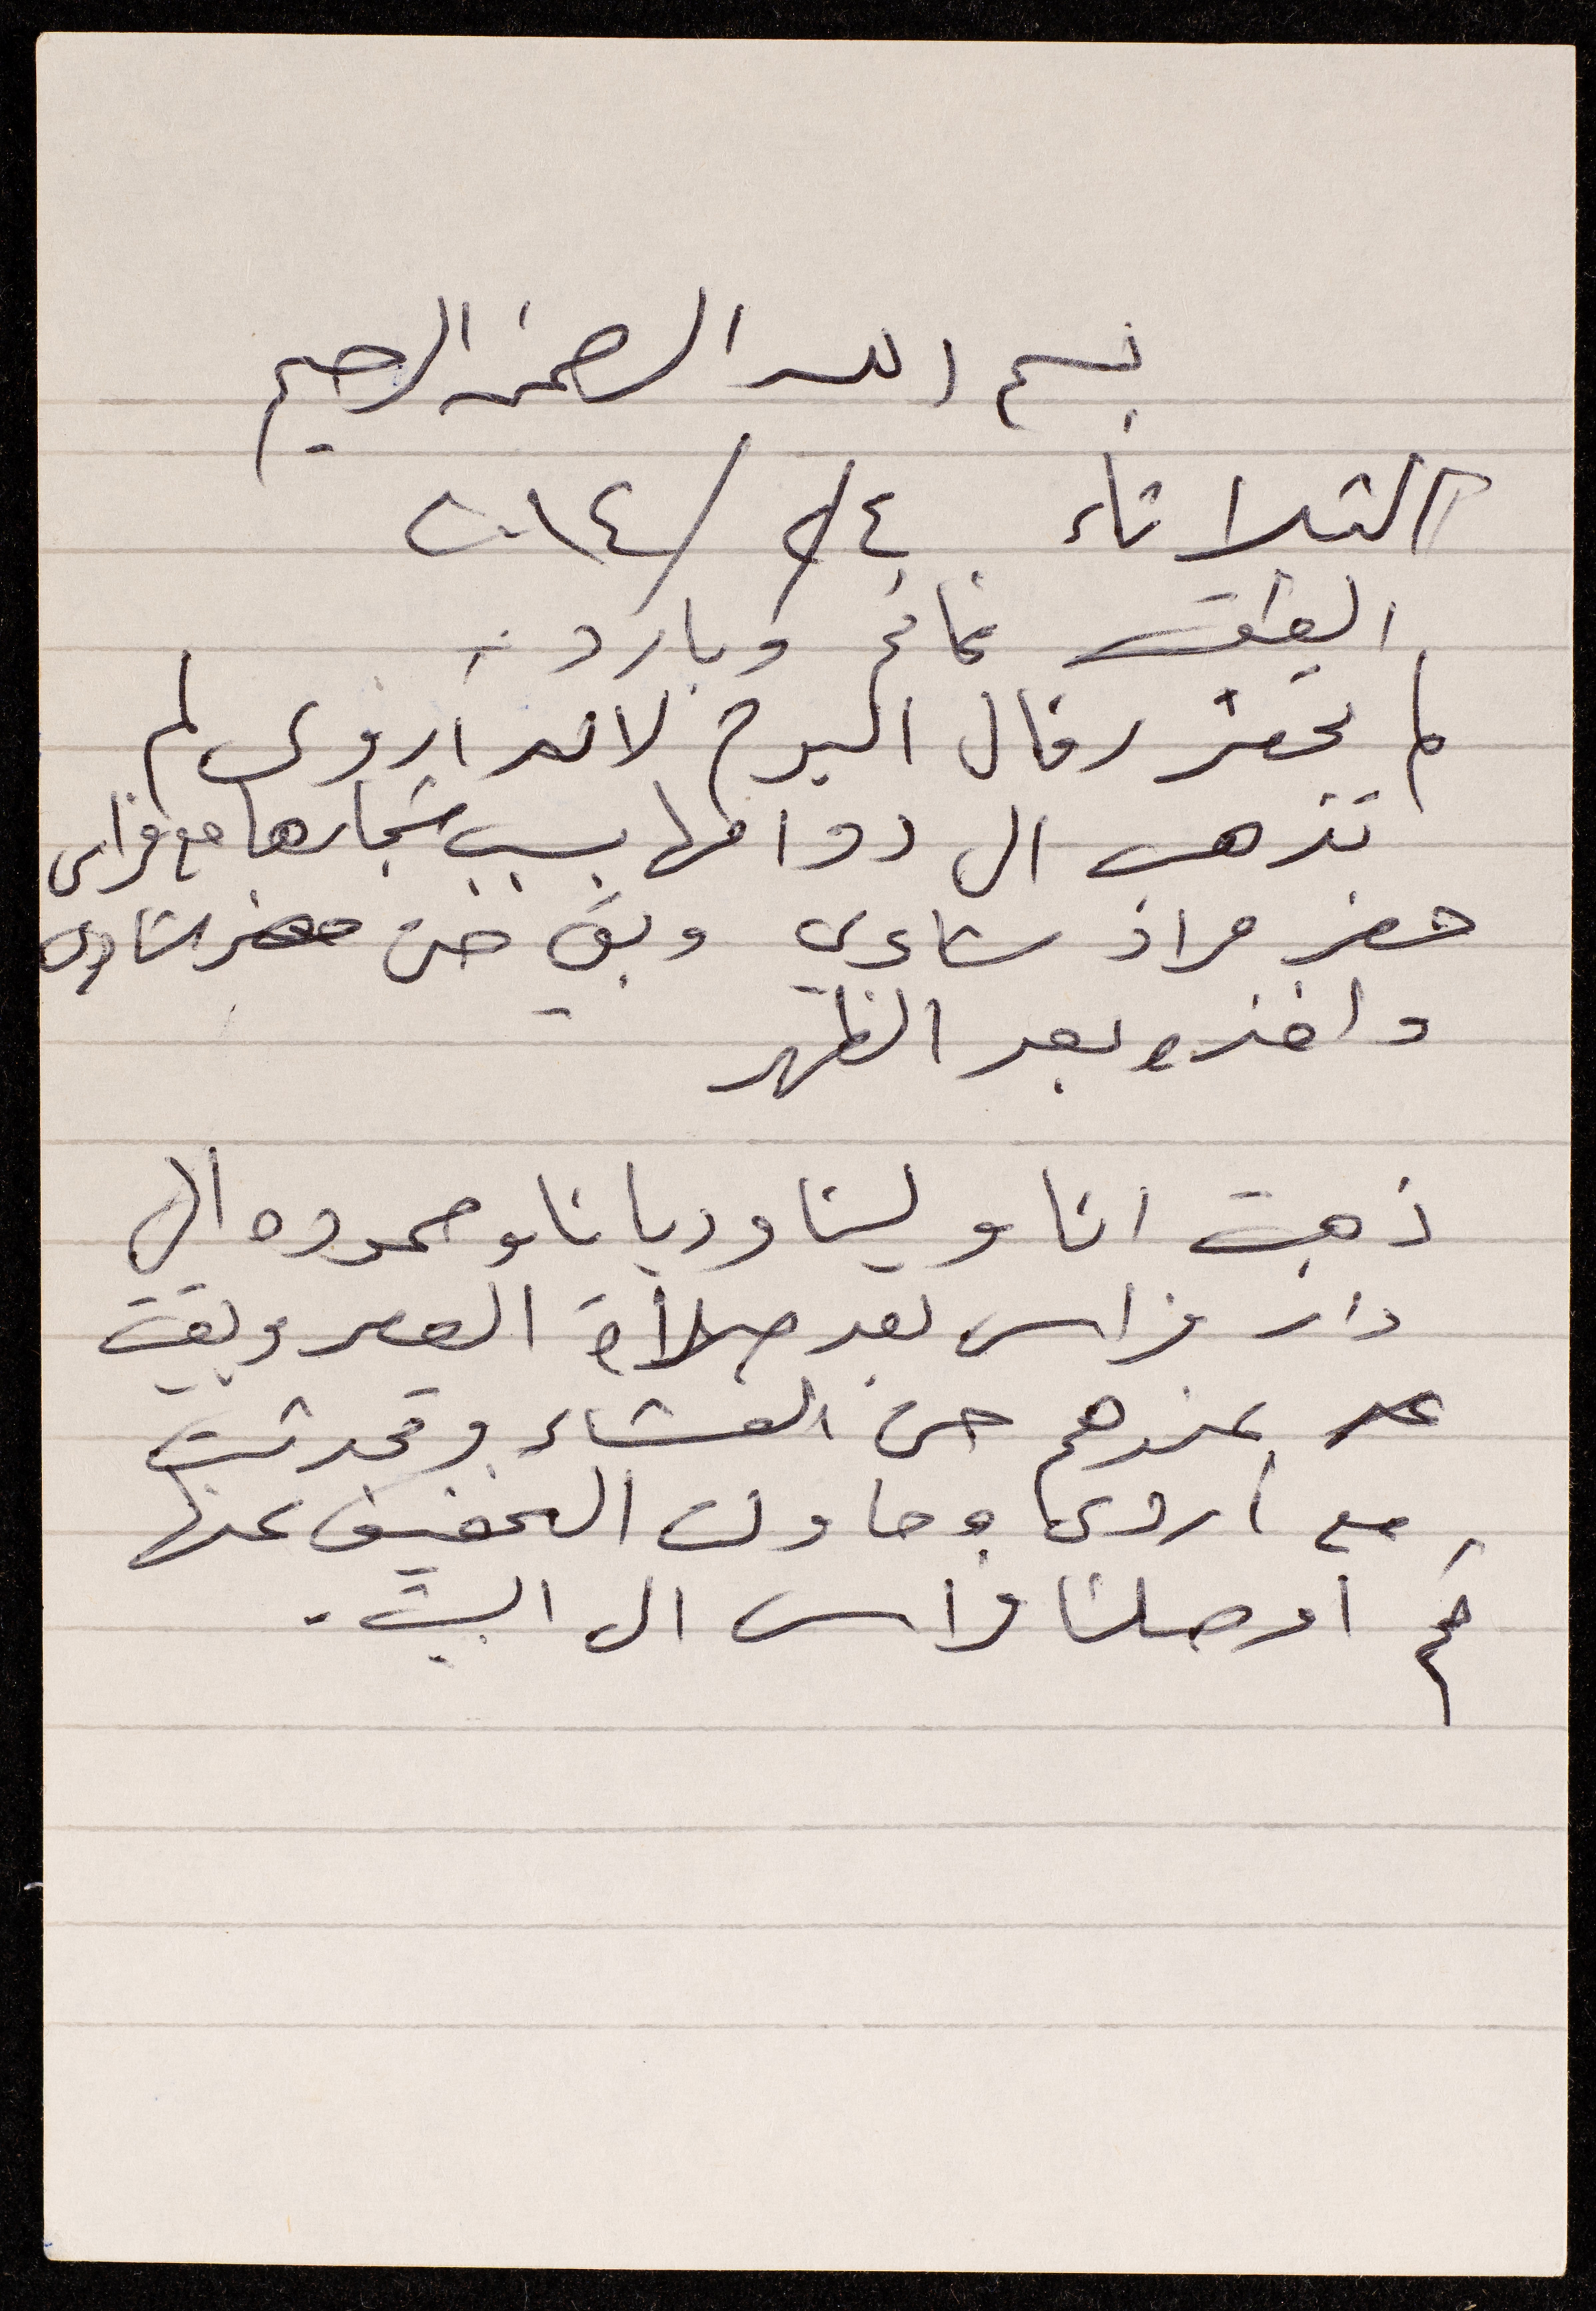 بسم الله الرحمن الرحيم
الثلاثاء ٤/٢/٢٠١٤
الطقس غائم وبارد
لم تحضر رفال اليوم لانه اروى لم
تذهب الى دوامها بسبب شجارها مع فراس
حضر مراد شادي وبقي حتى حضر شادي
واخذه بعد الظهر
ذهبت انا ولينا وديانا وحموده الى
دار فراس بعد صلاة العصر وبقيت
عندهم حتى العشاء وتحدثت
مع اروى وحاولت التخفيف عنها
ثم اوصلنا فراس الى البيت.